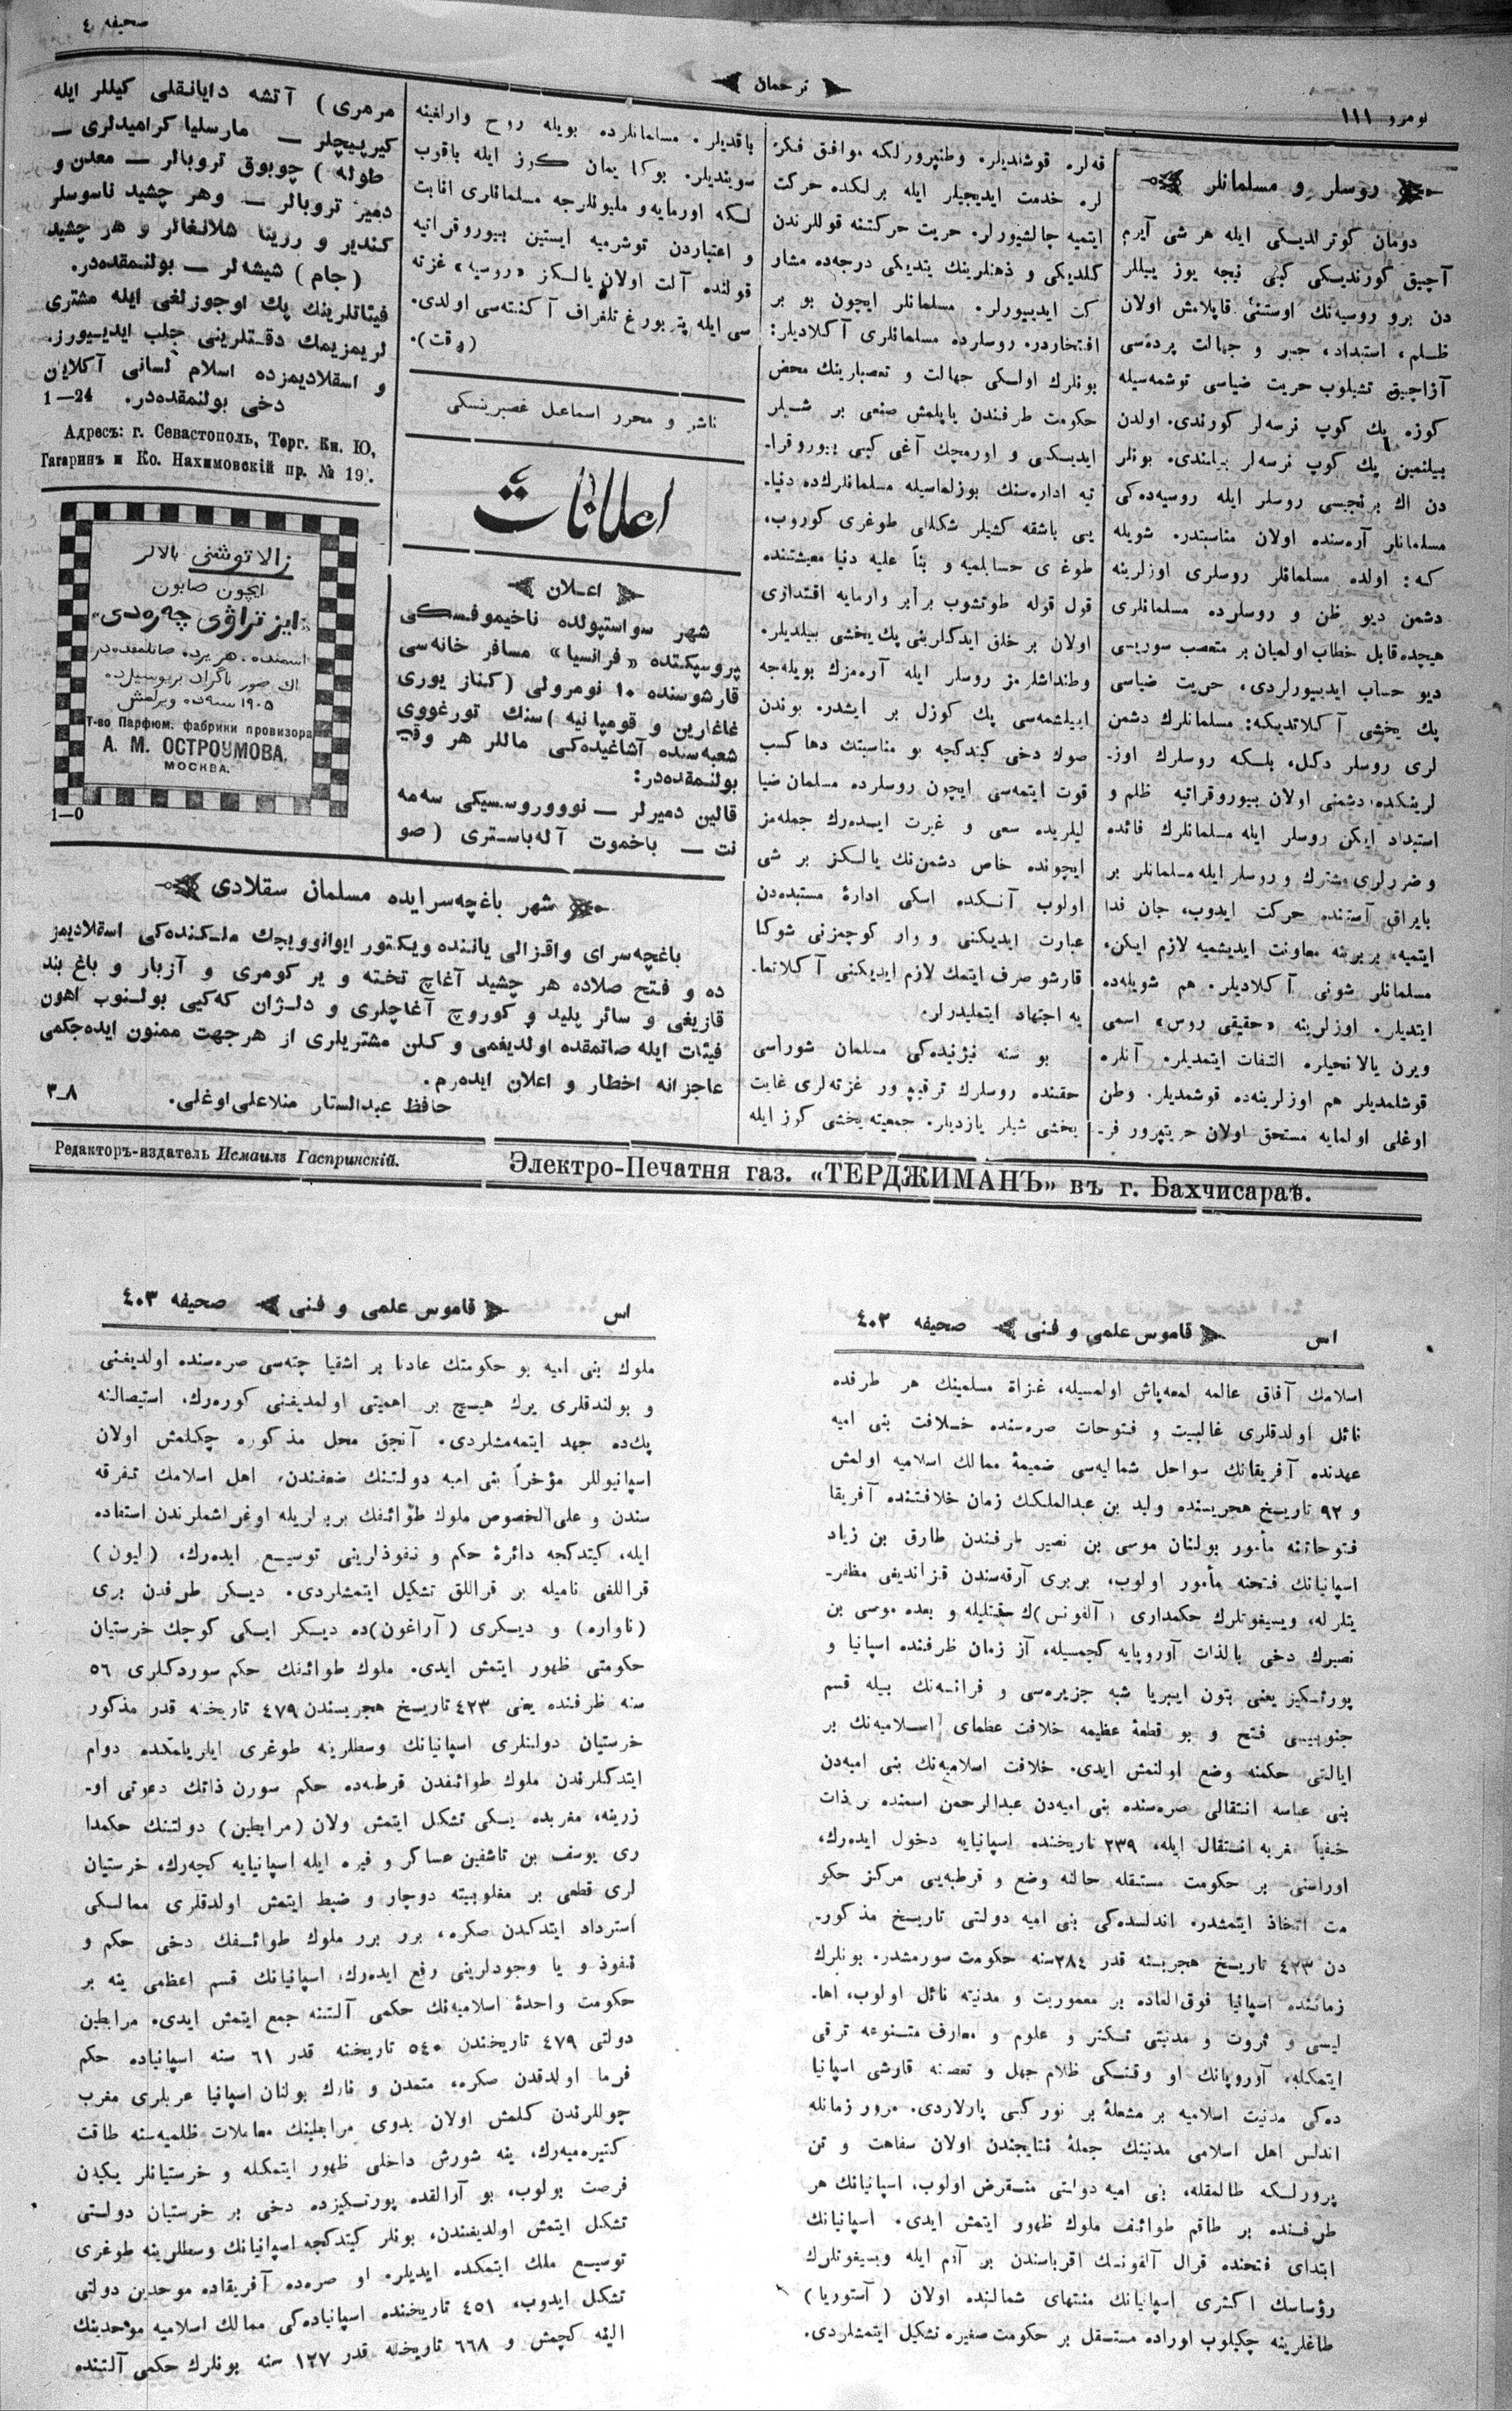 صحیفه ٤
ترجمان
نومرو ١١١
روسلر و مسلمانلر
دومان کوترلدیکی ایله هر شی آیرم
آچیق کورندیکی کبی نیجه یوز ییللر
دن برو روسیه‌نك اوستنی قاپلامش اولان
ظلم، استبداد، جبر و جهالت پرده‌سی
آزاجیق تشیلوب حریت ضیاسی توشمه‌سیله
کوزه پك کوپ نرسه‌لر کورندی. اولدن
بیلنمین پك کوپ نرسه‌لر بیلندی. بونلر
دن اك برنجیسی روسلر ایله روسیه‌ده‌کی
مسلمانلر آره‌سنده اولان مناسبتدر. شویله
که: اولده مسلمانلر روسلری اوزلرینه
دشمن دیو ظن و روسلرده مسلمانلری
هیچده قابل خطاب اولمیان بر متعصب سوریسی
دیو حساب ایدییورلردی، حریت ضیاسی
پك یخشی آکلاتدیکه: مسلمانلرك دشمن
لری روسلر دکل، بلکه روسلرك اوز-
لرینکده دشمنی اولان بیوروقراتیه ظلم و
استبداد ایکن روسلر ایله مسلمانلرك فائده
و ضررلری مشترك و روسلر ایله مسلمانلر بر
بایراق آستنده حرکت ایدوب، جان فدا
ایتمیه، بربرینه معاونت ایدیشمیه لازم ایکن،
مسلمانلر شونی آکلادیلر. هم شویله‌ده
ایتدیلر. اوزلرینه «حقیقی روس» اسمی
ویرن یالانجیلره التفات ایتمدیلر. آنلره
قوشلمدیلر هم اوزلرینه‌ده قوشمدیلر. وطن
اوغلی اولمایه مستحق اولان حریتپرور فر-
قه‌لره قوشلدیلر. وطنپرورلکه موافق فکر
لره خدمت ایدیجیلر ایله برلکده حرکت
ایتمیه چالشیورلر. حریت حرکتنه قوللرندن
کلدیکی و ذهنلرینك یتدیکی درجه‌ده مشار
کت ایدییورلر. مسلمانلر ایچون بو بر
افتخاردر. روسلرده مسلمانلری آکلادیلر:
بونلرك اولکی جهالت و تعصبلرینك محض
حکومت طرفندن یاپلمش صنعی بر شیلر
ایدیکنی و اورمچك آغی کبی بیوروقرا-
تیه اداره‌سنك بوزلماسیله مسلمانلرك‌ده دنیا-
یی باشقه کشیلر شکللی طوغری کوروب،
طوغری حسابلمیه و بناً علیه دنیا معیشتنده
قول قوله طوتشوب برابر وارمایه اقتداری
اولان بر خلق ایدکلرینی پك یخشی بیلدیلر.
وطنداشلرمز روسلر ایله آره‌مزك بویله‌جه
ایبیلشمه‌سی پك کوزل بر ایشدر. بوندن
صوك دخی کیتدکچه بو مناسبتك دها کسب
قوت ایتمه‌سی ایچون روسلرده مسلمان ضیا
لیلریده سعی و غیرت ایده‌رك جمله‌مز
ایچونده خاص دشمن‌نك یالکز بر شی
اولوب آنکده اسکی ادارهٔ مستبده‌دن
عبارت ایدیکنی و وار کوچمزنی شوکا
قارشو صرف ایتمك لازم ایدیکنی آکلاتما-
یه اجتهاد ایتملیدرلر.
بو سنه نیژنیده‌کی مسلمان شوراسی
حقنده روسلرك ترقیپرور غزته‌لری غایت
یخشی شیلر یازدیلر. جمعیته یخشی کوز ایله
باقدیلر. مسلمانلرده بویله روح وارلغینه
سویندیلر. بوکا یمان کوز ایله باقوب
لکه اورمایه و ملیونلرجه مسلمانلری اثابت
و اعتباردن توشرمیه ایستین بیوروقراتیه
قولنده آلت اولان یالکز «روسیه» غزته
سی ایله پتربورغ تلغراف آکنته‌سی اولدی.
(وقت).
ناشر و محرر اسماعیل غصپرینسکی
اعلانات
اعلان
شهر سواستپولده ناخیموفسکی
پروسپکتده «فرانسیا» مسافر خانه‌سی
قارشوسنده ١٠ نومرولی (کناز یوری
غاغارین و قومپانیه) سنك تورغووی
شعبه‌سنده آشاغیده‌کی ماللر هر وقت
بولنمقده‌در:
قالین دمیرلر — نوووروسسیکی سه‌مه
نت — باخموت آله‌باستری (صو
مرمری) آتشه دایانقلی کیللر ایله
کیرپیچلر — مارسلیا کرامیدلری —
طوله) چوبوق تروبالر — معدن و
دمیر تروبالر — وهر چشید ناسوسلر
کندیر و رزینا شلانغالر و هر چشید
(جام) شیشه‌لر — بولنمقده‌در.
فیئاتلرینك پك اوجوزلغی ایله مشتری
لریمزیمك دقتلرینی جلب ایدییورز.
و اسقلادیمزده اسلام لسانی آکلایان
دخی بولنمقده‌در. 24—1
Адресъ: г. Севастополь, Торг. Кн. Ю,
Гагаринъ и Ко. Нахимовскій пр. № 19.
زالاتوشنی بالالر
ایچون صابون
«ایز تراوی چه‌ره‌دی»
اسمنده. هر یرده صاتلمقده‌در
١٩٠٥ سنه‌ده ویرلمش
Т-во Парфюм. фабрики провизора
А. М. ОСТРОУМОВА.
МОСКВА.
1—0
شهر باغچه‌سرایده مسلمان سقلادی
باغچه‌سرای واقزالی یاننده ویکتور ایوانوویچك ملکنده‌کی اسقلادیمز
ده و فتح صلاده هر چشید آغاچ تخته و یر کومری و آزبار و باغ بند
قازیغی و سائر پلید و کوروچ آغاچلری و دلـژان که‌کیی بولنوب اهون
فیئات ایله صاتمقده اولدیغمی و کلن مشتریلری از هر جهت ممنون ایده‌جکمی
عاجزانه اخطار و اعلان ایده‌رم.
حافظ عبدالستار منلاعلی اوغلی. ٨ـ٣
Редакторъ-издатель Исмаилъ Гаспринскій.
Электро-Печатня газ. «ТЕРДЖИМАНЪ» въ г. Бахчисараѣ.
اس قاموس علمی و فنی صحیفه ٤٠٢
اسلامك آفاق عالمه لمعه‌پاش اولمسیله، غزاة مسلمینك هر طرفده
نائل اولدقلری غالبیت و فتوحات صره‌سنده خلافت بنی امیه
عهدنده آفریقانك سواحل شمالیه‌سی ضمیمهٔ ممالك اسلامیه اولمش
و ٩٢ تاریخ هجریسنده ولید بن عبدالملكك زمان خلافتنده آفریقا
فتوحاتنه مأمور بولنان موسی بن نصیر طرفندن طارق بن زیاد
اسپانیانك فتحنه مأمور اولوب، بربری آرقه‌سندن قزاندیغی مظفر-
یتلرله، ویسیغوتلرك حکمداری (آلفونس)ك قتلیله و بعده موسی بن
نصیرك دخی بالذات آوروپایه کچمسیله، آز زمان ظرفنده اسپانیا و
پورتکیز یعنی بتون ایبریا شبه جزیره‌سی و فرانسه‌نك بیله قسم
جنوبیسی فتح و بو قطعهٔ عظیمه خلافت عظمای اسلامیه‌نك بر
ایالتی حکمنه وضع اولنمش ایدی. خلافت اسلامیه‌نك بنی امیه‌دن
بنی عباسه انتقالی صره‌سنده بنی امیه‌دن عبدالرحمن اسمنده بر ذات
خفیاً مغربه انتقال ایله، ٢٣٩ تاریخنده اسپانیایه دخول ایده‌رك،
اوراسنی بر حکومت مستقله حالنه وضع و قرطبه‌یی مرکز حکو
مت اتخاذ ایتمشدر. اندلسده‌کی بنی امیه دولتی تاریخ مذکور-
دن ٤٢٣ تاریخ هجریسنه قدر ٢٨٤ سنه حکومت سورمشدر. بونلرك
زماننده اسپانیا فوق‌العاده بر معموریت و مدنیته نائل اولوب، اها-
لیسی و ثروت و مدنیتی تکثر و علوم و معارف متنوعه ترقی
ایتمکله، آوروپانك او وقتکی ظلام جهل و تعصبنه قارشی اسپانیا
ده‌کی مدنیت اسلامیه بر مشعلهٔ پر نور کبی پارلاردی. مرور زمانله
اندلس اهل اسلامی مدنیتك جملهٔ نتایجندن اولان سفاهت و تن
پرورلکه طالمقله، بنی امیه دولتی منقرض اولوب، اسپانیانك هر
طرفنده بر طاقم طوائف ملوك ظهور ایتمش ایدی. اسپانیانك
ابتدای فتحنده قرال آلفونسك اقرباسندن بر آدم ایله ویسیغوتلرك
رؤساسك اکثری اسپانیانك منتهای شمالنده اولان (آستوریا)
طاغلرینه چکیلوب اوراده مستقل بر حکومت صغیره تشکیل ایتمشلردی.
اس قاموس علمی و فنی صحیفه ٤٠٣
ملوك بنی امیه بو حکومتك عادتا بر اشقیا چته‌سی صره‌سنده اولدیغنی
و بولندقلری یرك هیچ بر اهمیتی اولمدیغنی کوره‌رك، استیصالنه
پك‌ده جهد ایتمه‌مشلردی. آنجق محل مذکوره چکلمش اولان
اسپانیوللر مؤخراً بنی امیه دولتنك ضعفندن، اهل اسلامك تفرقه
سندن و علی‌الخصوص ملوك طوائفك بربرلریله اوغراشملرندن استفاده
ایله، کیتدکجه دائرهٔ حکم و نفوذلرینی توسیع ایده‌رك، (لیون)
قراللغی نامیله بر قراللق تشکیل ایتمشلردی. دیکر طرفدن بری
(ناواره) و دیکری (آراغون)ده دیکر ایکی کوچك خرستیان
حکومتی ظهور ایتمش ایدی. ملوك طوائفك حکم سوردکلری ٥٦
سنه ظرفنده یعنی ٤٢٣ تاریخ هجریسندن ٤٧٩ تاریخنه قدر مذکور
خرستیان دولتلری اسپانیانك وسطلرینه طوغری ایلریلمکده دوام
ایتدکلرندن ملوك طوائفدن قرطبه‌ده حکم سورن ذاتك دعوتی او-
زرینه، مغربده یسکی تشکل ایتمش ولان (مرابطین) دولتنك حکمدا
ری یوسف بن تاشفین عساکر و فیره ایله اسپانیایه کچه‌رك، خرستیان
لری قطعی بر مغلوبیته دوچار و ضبط ایتمش اولدقلری ممالکی
استرداد ایتدکدن صکره، برر برر ملوك طوائفك دخی حکم و
نفوذ و یا وجودلرینی رفع ایده‌رك، اسپانیانك قسم اعظمی ینه بر
حکومت واحدهٔ اسلامیه‌نك حکمی آلتنه جمع ایتمش ایدی. مرابطین
دولتی ٤٧٩ تاریخندن ٥٤٠ تاریخنه قدر ٦١ سنه اسپانیاده حکم
فرما اولدقدن صکره، متمدن و نازك بولنان اسپانیا عربلری مغرب
چوللرندن کلمش اولان بدوی مرابطینك معاملات ظلمیه‌سنه طاقت
کتیره‌میه‌رك، ینه شورش داخلی ظهور ایتمکله و خرستیانلر یکیدن
فرصت بولوب، بو آرالقده پورتکیزده دخی بر خرستیان دولتی
تشکل ایتمش اولدیغندن، بونلر کیتدکجه اسپانیانك وسطلرینه طوغری
توسیع ملك ایتمکده ایدیلر. او صره‌ده آفریقاده موحدین دولتی
تشکل ایدوب، ٤٥١ تاریخنده اسپانیاده‌کی ممالك اسلامیه موحدینك
الینه کچمش و ٦٦٨ تاریخنه قدر ١٢٧ سنه بونلرك حکمی آلتنده